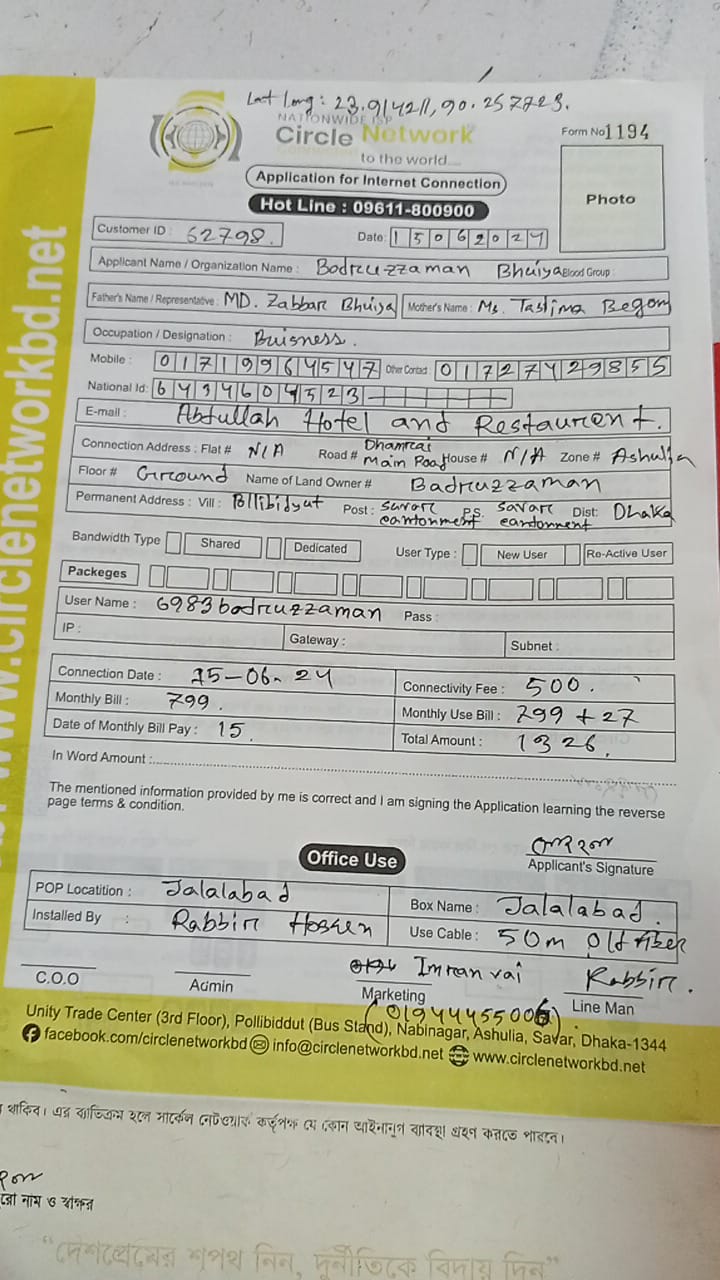 Lat long: 23.914211, 90.257723.
NATIONWIDE ISP
Circle Network
to the world....
Form No 1194
Application for Internet Connection
Hot Line : 09611-800900
Photo
Customer ID : 62798.
Date: 15062024
Applicant Name / Organization Name : Bodruzzaman Bhuiya Blood Group :
Father's Name / Representative : MD. Zabbar Bhuiya Mother's Name : Ms. Taslima Begom
Occupation / Designation : Buisness.
Mobile : 01719964547 Other Contact : 01727429855
National Id: 6434604523
E-mail : Abtullah Hotel and Restaurent.
Connection Address : Flat # N/A Road # Dhamrai Main Road House # N/A Zone # Ashulia
Floor # Ground Name of Land Owner # Badruzzaman
Permanent Address : Vill : Pollibidyut Post : savar cantonment P.S. savar cantonment Dist: Dhaka
Bandwidth Type Shared Dedicated User Type : New User Re-Active User
Packeges
User Name : 6983bodruzzaman Pass :
IP : Gateway : Subnet :
Connection Date : 15-06-24 Connectivity Fee : 500.
Monthly Bill : 799. Monthly Use Bill : 799 + 27
Date of Monthly Bill Pay : 15. Total Amount : 1326.
In Word Amount :
The mentioned information provided by me is correct and I am signing the Application learning the reverse
page terms & condition.
Applicant's Signature
Office Use
POP Locatition : Jalalabad Box Name : Jalalabad.
Installed By : Rabbir Hossen Use Cable : 50m Old fiber
Imran vai Rabbir.
C.O.O Admin Marketing Line Man
(01944455006)
Unity Trade Center (3rd Floor), Pollibiddut (Bus Stand), Nabinagar, Ashulia, Savar, Dhaka-1344
facebook.com/circlenetworkbd info@circlenetworkbd.net www.circlenetworkbd.net
www.circlenetworkbd.net
থাকিব। এর ব্যতিক্রম হলে সার্কেল নেটওয়ার্ক কর্তৃপক্ষ যে কোন আইনানুগ ব্যবস্থা গ্রহণ করতে পারবে।
নাম ও স্বাক্ষর
“দেশপ্রেমের শপথ নিন, দুর্নীতিকে বিদায় দিন”